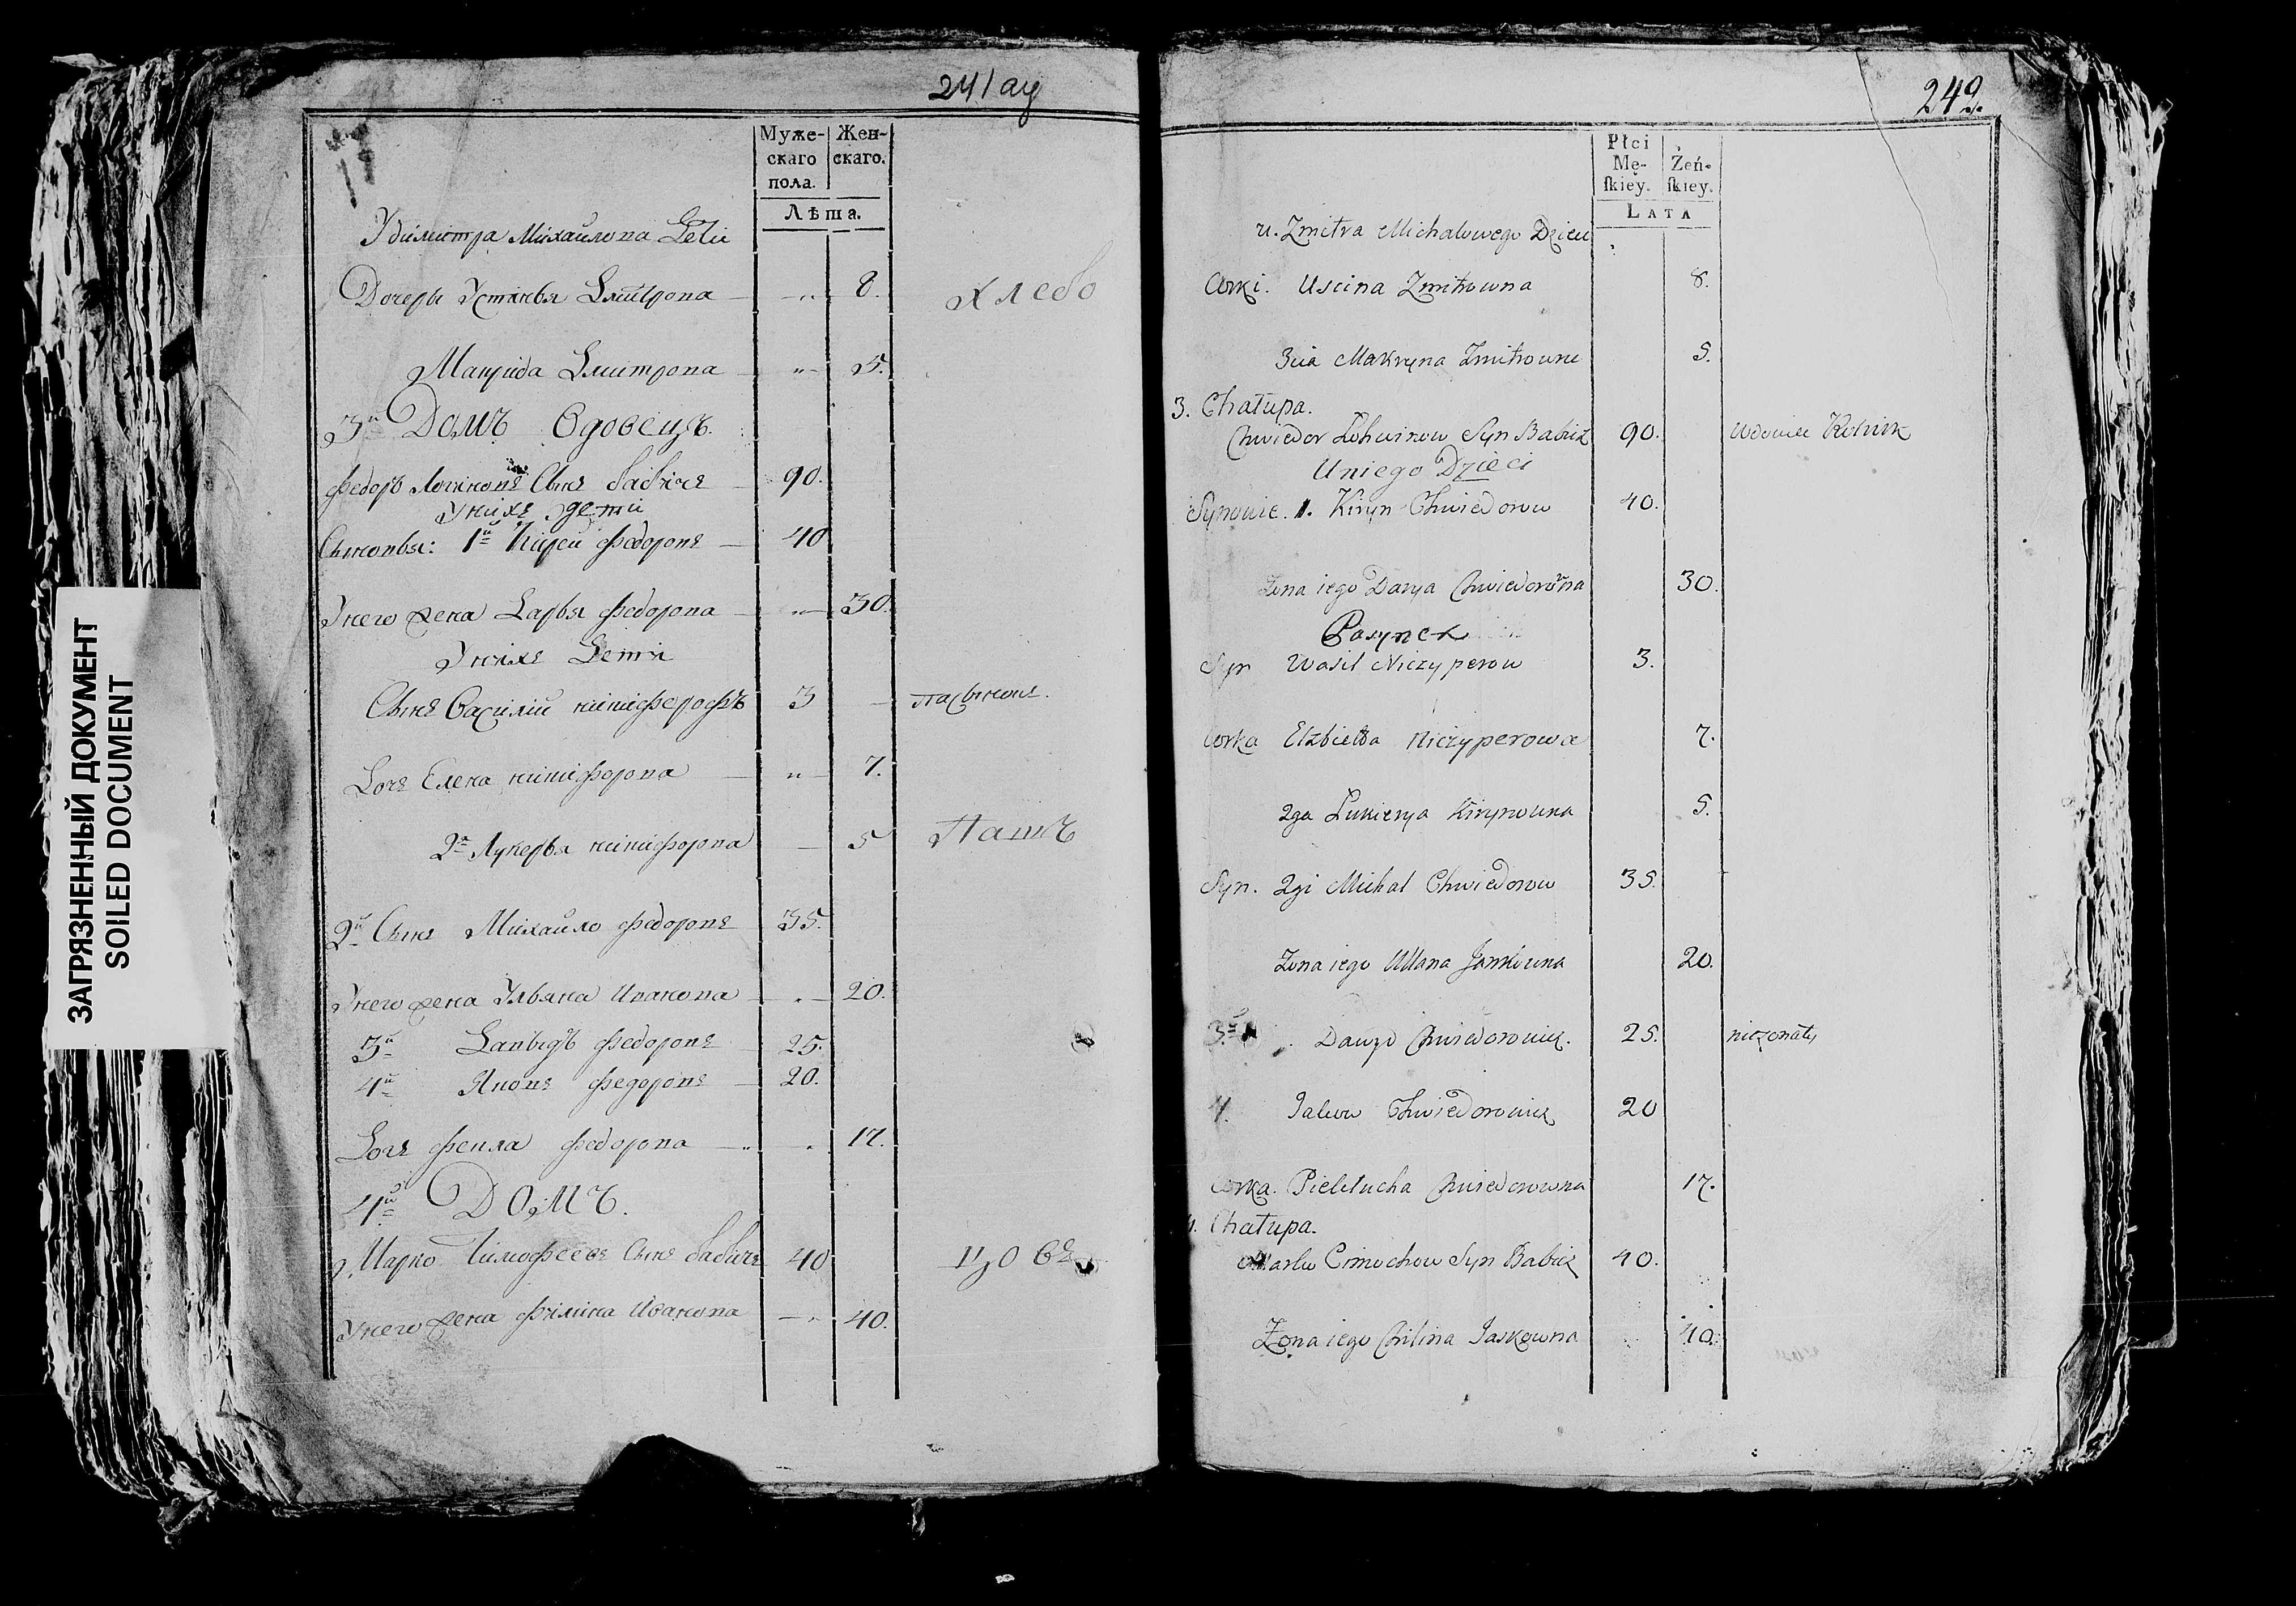 ЗАГРЯЗНЕННЫЙ ДОКУМЕНТ
SOILED DOCUMENT
241 ау
Муже-скаго пола. Жен-скаго.
Лѣта.
У дмитра Михайлова Дети
Дочерь Устинья Дмитрова 8. Хлебо
Макрида Дмитрова 5.
3й Домъ Вдовецъ.
Федоръ Логиновъ Сынъ бабичъ 90.
У нихъ дети
Сыновья: 1й Кирей Федоровъ 40
У него жена Дарья Федорова 30.
У нихъ Дети
Сынъ Василий никифорофъ 3 пасынокъ.
Дочь Елена никифорова 7.
2я Лукерья никифорова 5 Пашъ
2й Сынъ Михайло Федоровъ 35.
У него жена Ульяна Иванова 20.
3й Давыдъ Федоровъ 25.
4й Яковъ Федоровъ 20.
Дочь Фекла Федорова 17.
4й Домъ.
Марко Тимофеевъ Сынъ бабичъ 40
У него жена Филина Иванова 40.
242.
Płci Mę-skiey. Żeń-skiey.
LATA
u. Zmitra Michalowego Dzieci
Corki. Uscina Zmitrowna 8.
3cia Makryna Zmitrowna 5.
3. Chałupa.
Chwiedor Lohwinow Syn Babicz 90. Wdowiec
U niego Dzieci
Synowie. 1. Kiryn Chwiedorow 40.
Zona iego Darya Chwiedorowna 30.
Pasynek
Syn Wasil Niczyperow 3.
Corka Elzbieta Niczyperowa 7.
2ga Lukierya Kirynowna 5.
Syn. 2gi Michal Chwiedorow 35.
Zona iego Ullana Jankowna 20.
3й Dawyd Chwiedorowicz. 25. nieżonaty
4. Jakow Chwiedorowicz 20
Corka. Chwiedorowna 17.
4. Chałupa.
Marko Cimochow Syn Babicz 40.
Zona iego Chilina Jaskowna 40.